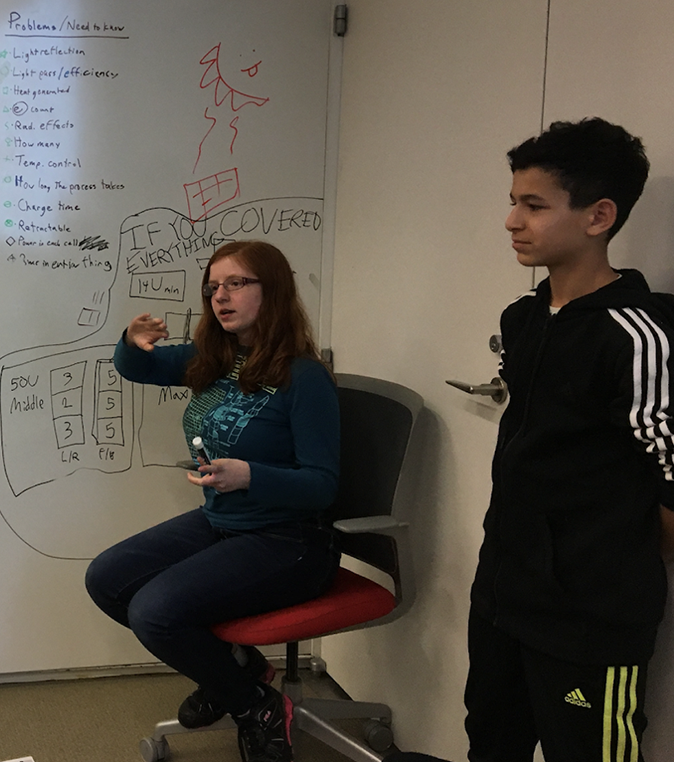 Problems/Need to know
Light reflection
Light pass/efficiency
Heat generated
e count
Rad. effects
How many
Temp. control
How long the process takes
Charge time
Retractable
Power in each cell
IF YOU COVERED
EVERYTHING
14U min
50U
Middle
3
2
3
L/R
5
5
5
Max
adidas